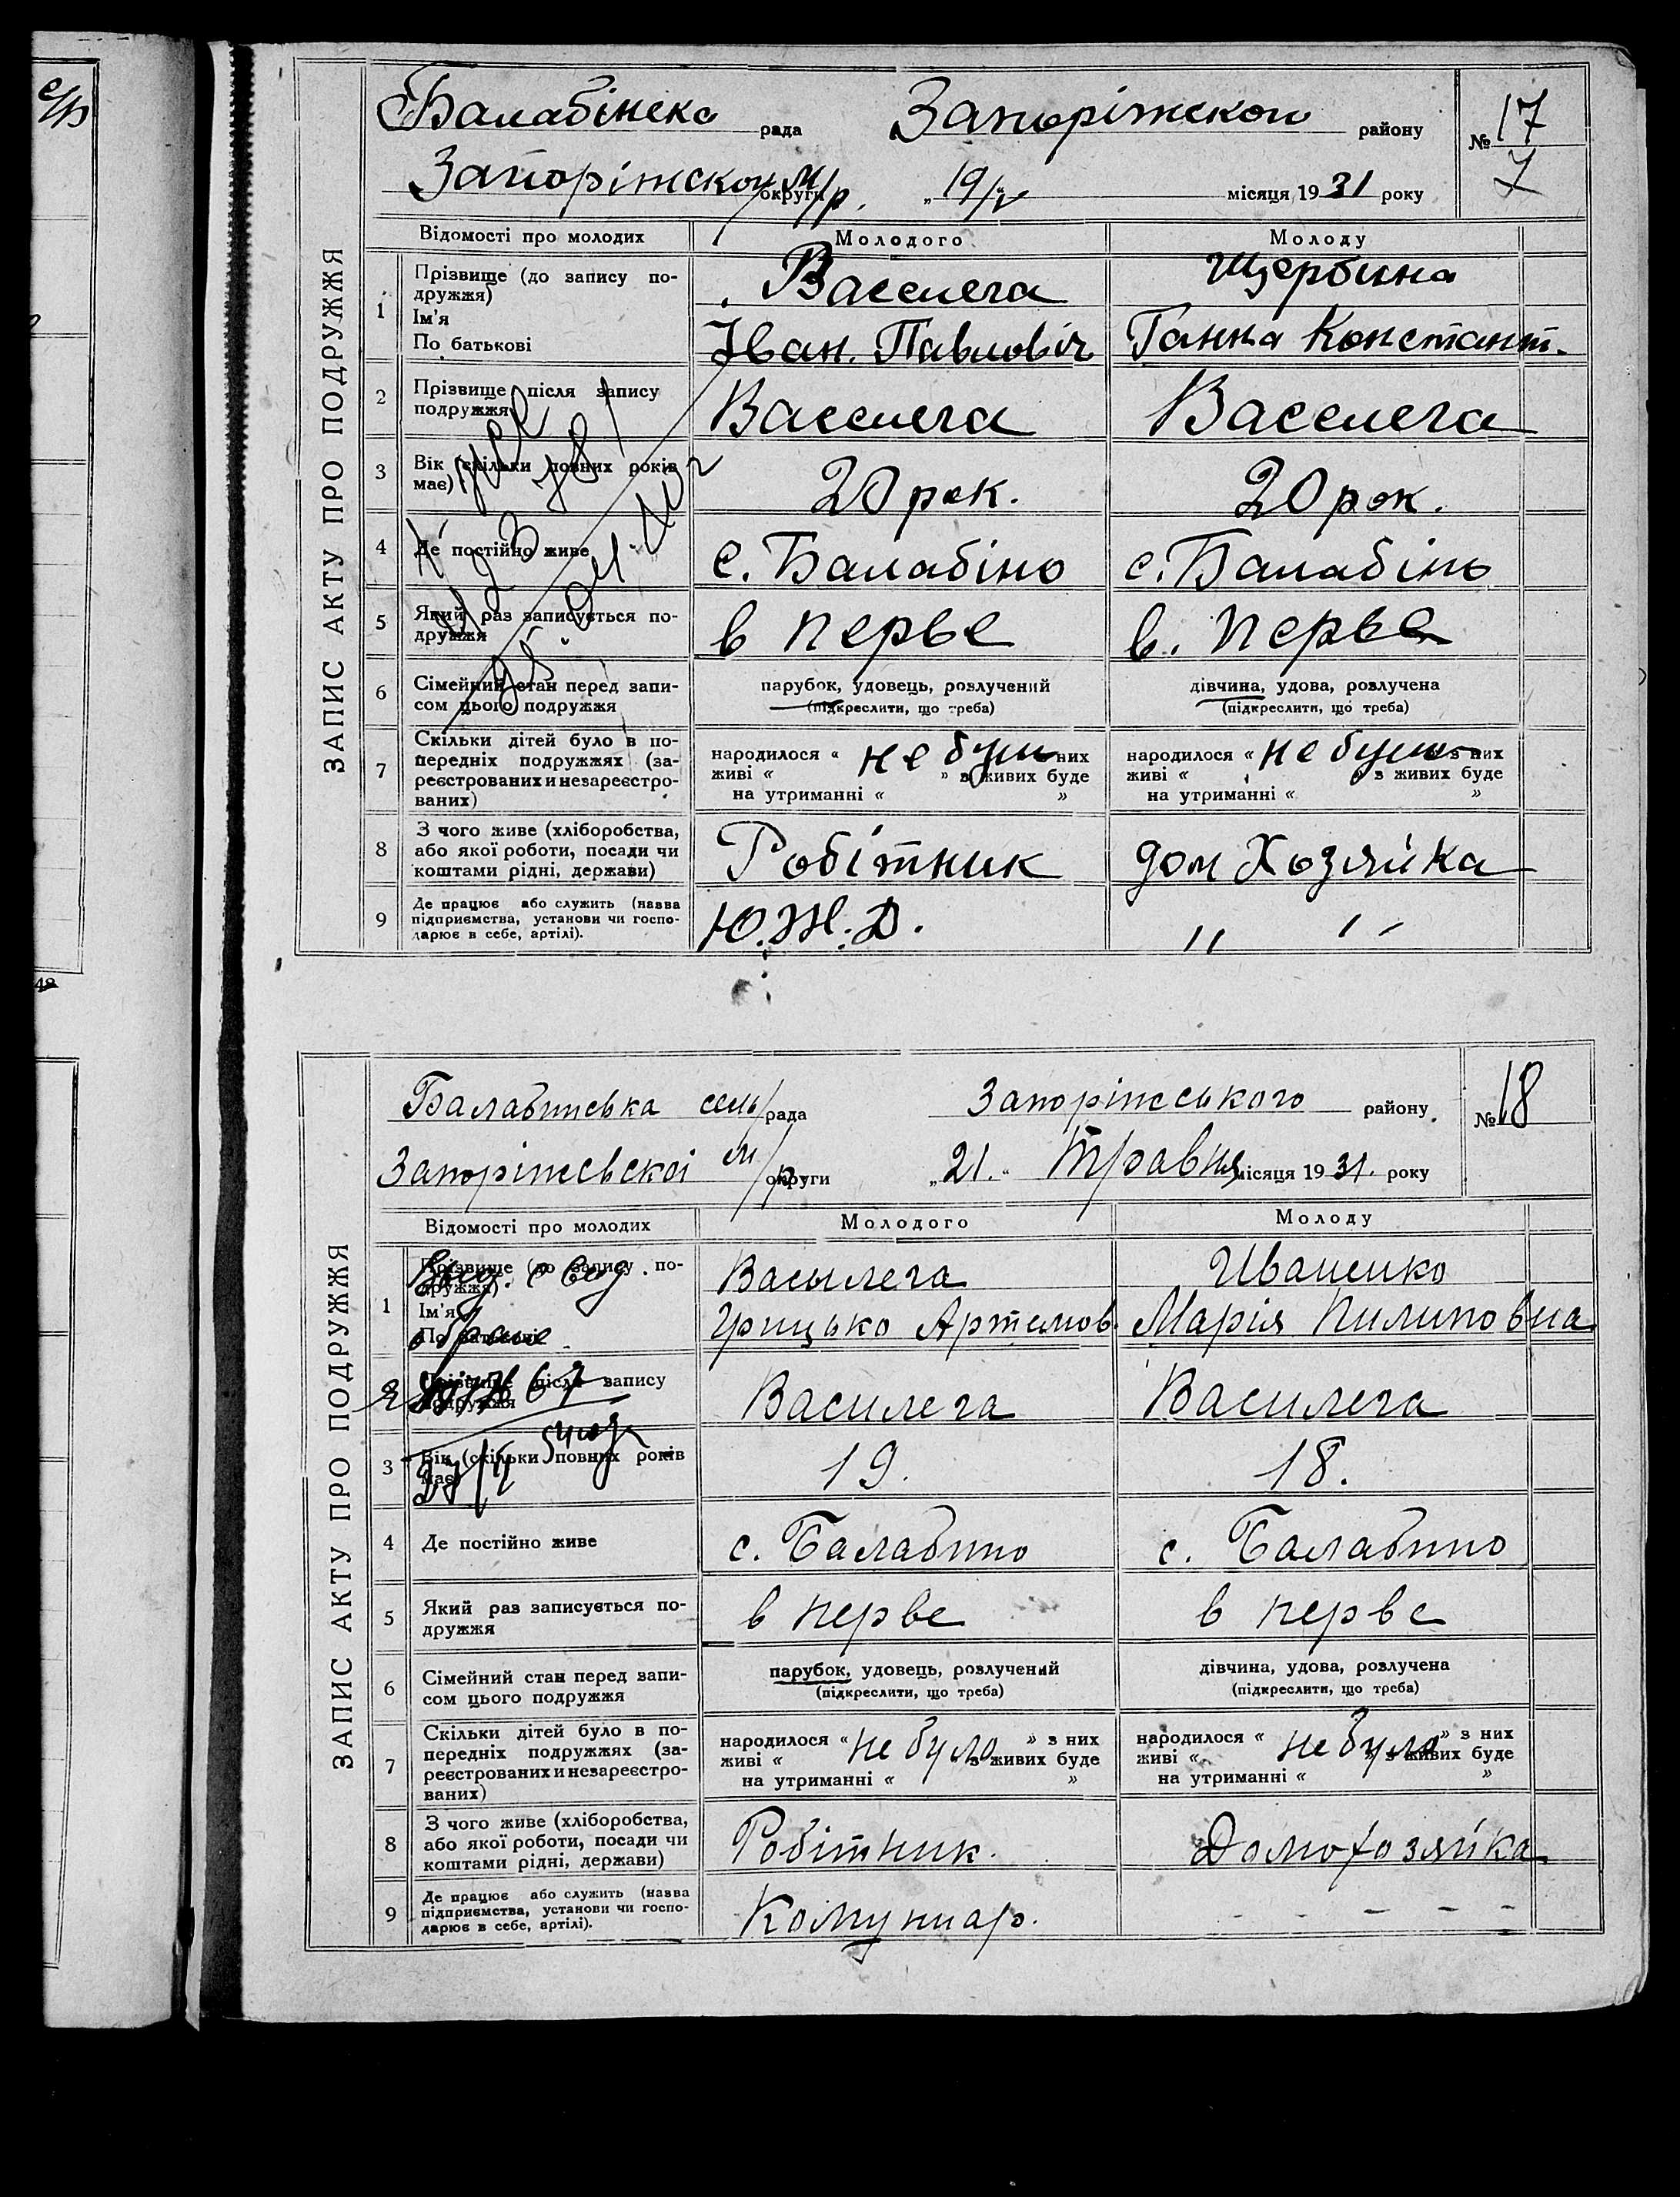 Балабінска рада Запоріжской району № 17
7
Запоріжскои м/р. округи „19/V“ місяця 1931 року
ЗАПИС АКТУ ПРО ПОДРУЖЖЯ
Відомості про молодих Молодого Молоду
1 Прізвище (до запису по-
дружжя)
Ім'я
По батькові
Васелега
Іван. Павловіч
Щербина
Ганна Констант.
2 Прізвище після запису
подружжя
Васелега Васелега
3 Вік скільки повних років
має)
20 рок. 20 рок.
4 Де постійно живе с. Балабіно с. Балабіно
5 Який раз записується по-
дружжя
в перве в. перве
6 Сімейний стан перед запи-
сом цього подружжя
парубок, удовець, розлучений
(підкреслити, що треба)
дівчина, удова, розлучена
(підкреслити, що треба)
7 Скільки дітей було в по-
передніх подружжях (за-
реєстрованих и незареєстро-
ваних)
народилося « не були них
живі « » з живих буде
на утриманні « »
народилося « не були з них
живі « » з живих буде
на утриманні « »
8 З чого живе (хліборобства,
або якої роботи, посади чи
коштами рідні, держави)
Робітник дом Хозяйка
9 Де працює або служить (назва
підприємства, установи чи госпо-
дарює в себе, артілі).
Ю.Ж.Д. „ „
Балабинська сель/рада Запоріжського району № 18
Запоріжської м/р округи „21.“ Травня місяця 1931. року
ЗАПИС АКТУ ПРО ПОДРУЖЖЯ
Відомості про молодих Молодого Молоду
1 Прізвище (до запису по-
дружжя)
Ім'я
По батькові
Васылега
Грицько Артемов.
Иваненко
Марія Пилиповна
2 Прізвище після запису
подружжя
Василега Василега
3 Вік (скільки повних років
має)
19. 18.
4 Де постійно живе с. Балабино с. Балабино
5 Який раз записується по-
дружжя
в перве в перве
6 Сімейний стан перед запи-
сом цього подружжя
парубок, удовець, розлучений
(підкреслити, що треба)
дівчина, удова, розлучена
(підкреслити, що треба)
7 Скільки дітей було в по-
передніх подружжях (за-
реєстрованих и незареєстро-
ваних)
народилося « не було » з них
живі « з живих буде
на утриманні « »
народилося « не було » з них
живі « з живих буде
на утриманні « »
8 З чого живе (хліборобства,
або якої роботи, посади чи
коштами рідні, держави)
Робітник. Домохозяйка
9 Де працює або служить (назва
підприємства, установи чи госпо-
дарює в себе, артілі).
Комунар. - - - - - -